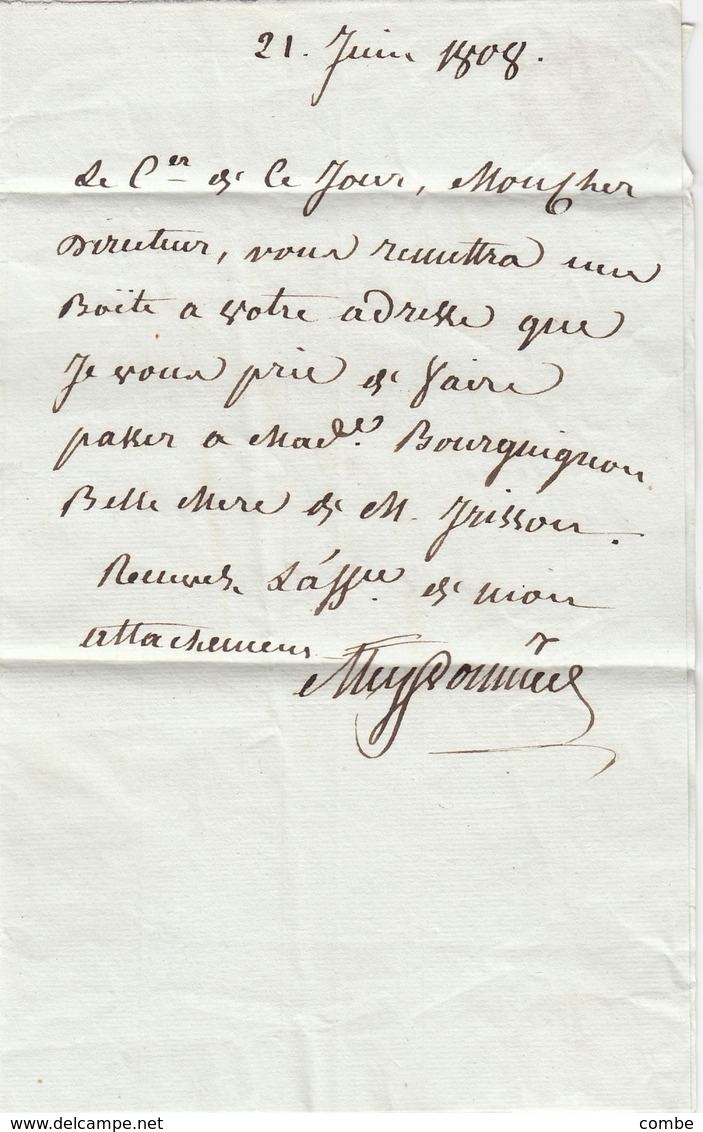 21. Juin 1808.
Le C.er de ce Jour, Mon Cher
Directeur, vous remettra une
Boëte a votre adresse que
Je vous prie de faire
passer a Made. Bourguignon
Belle Mere de M. Frisson.
L'assce. de mon
attachement
www.delcampe.net combe